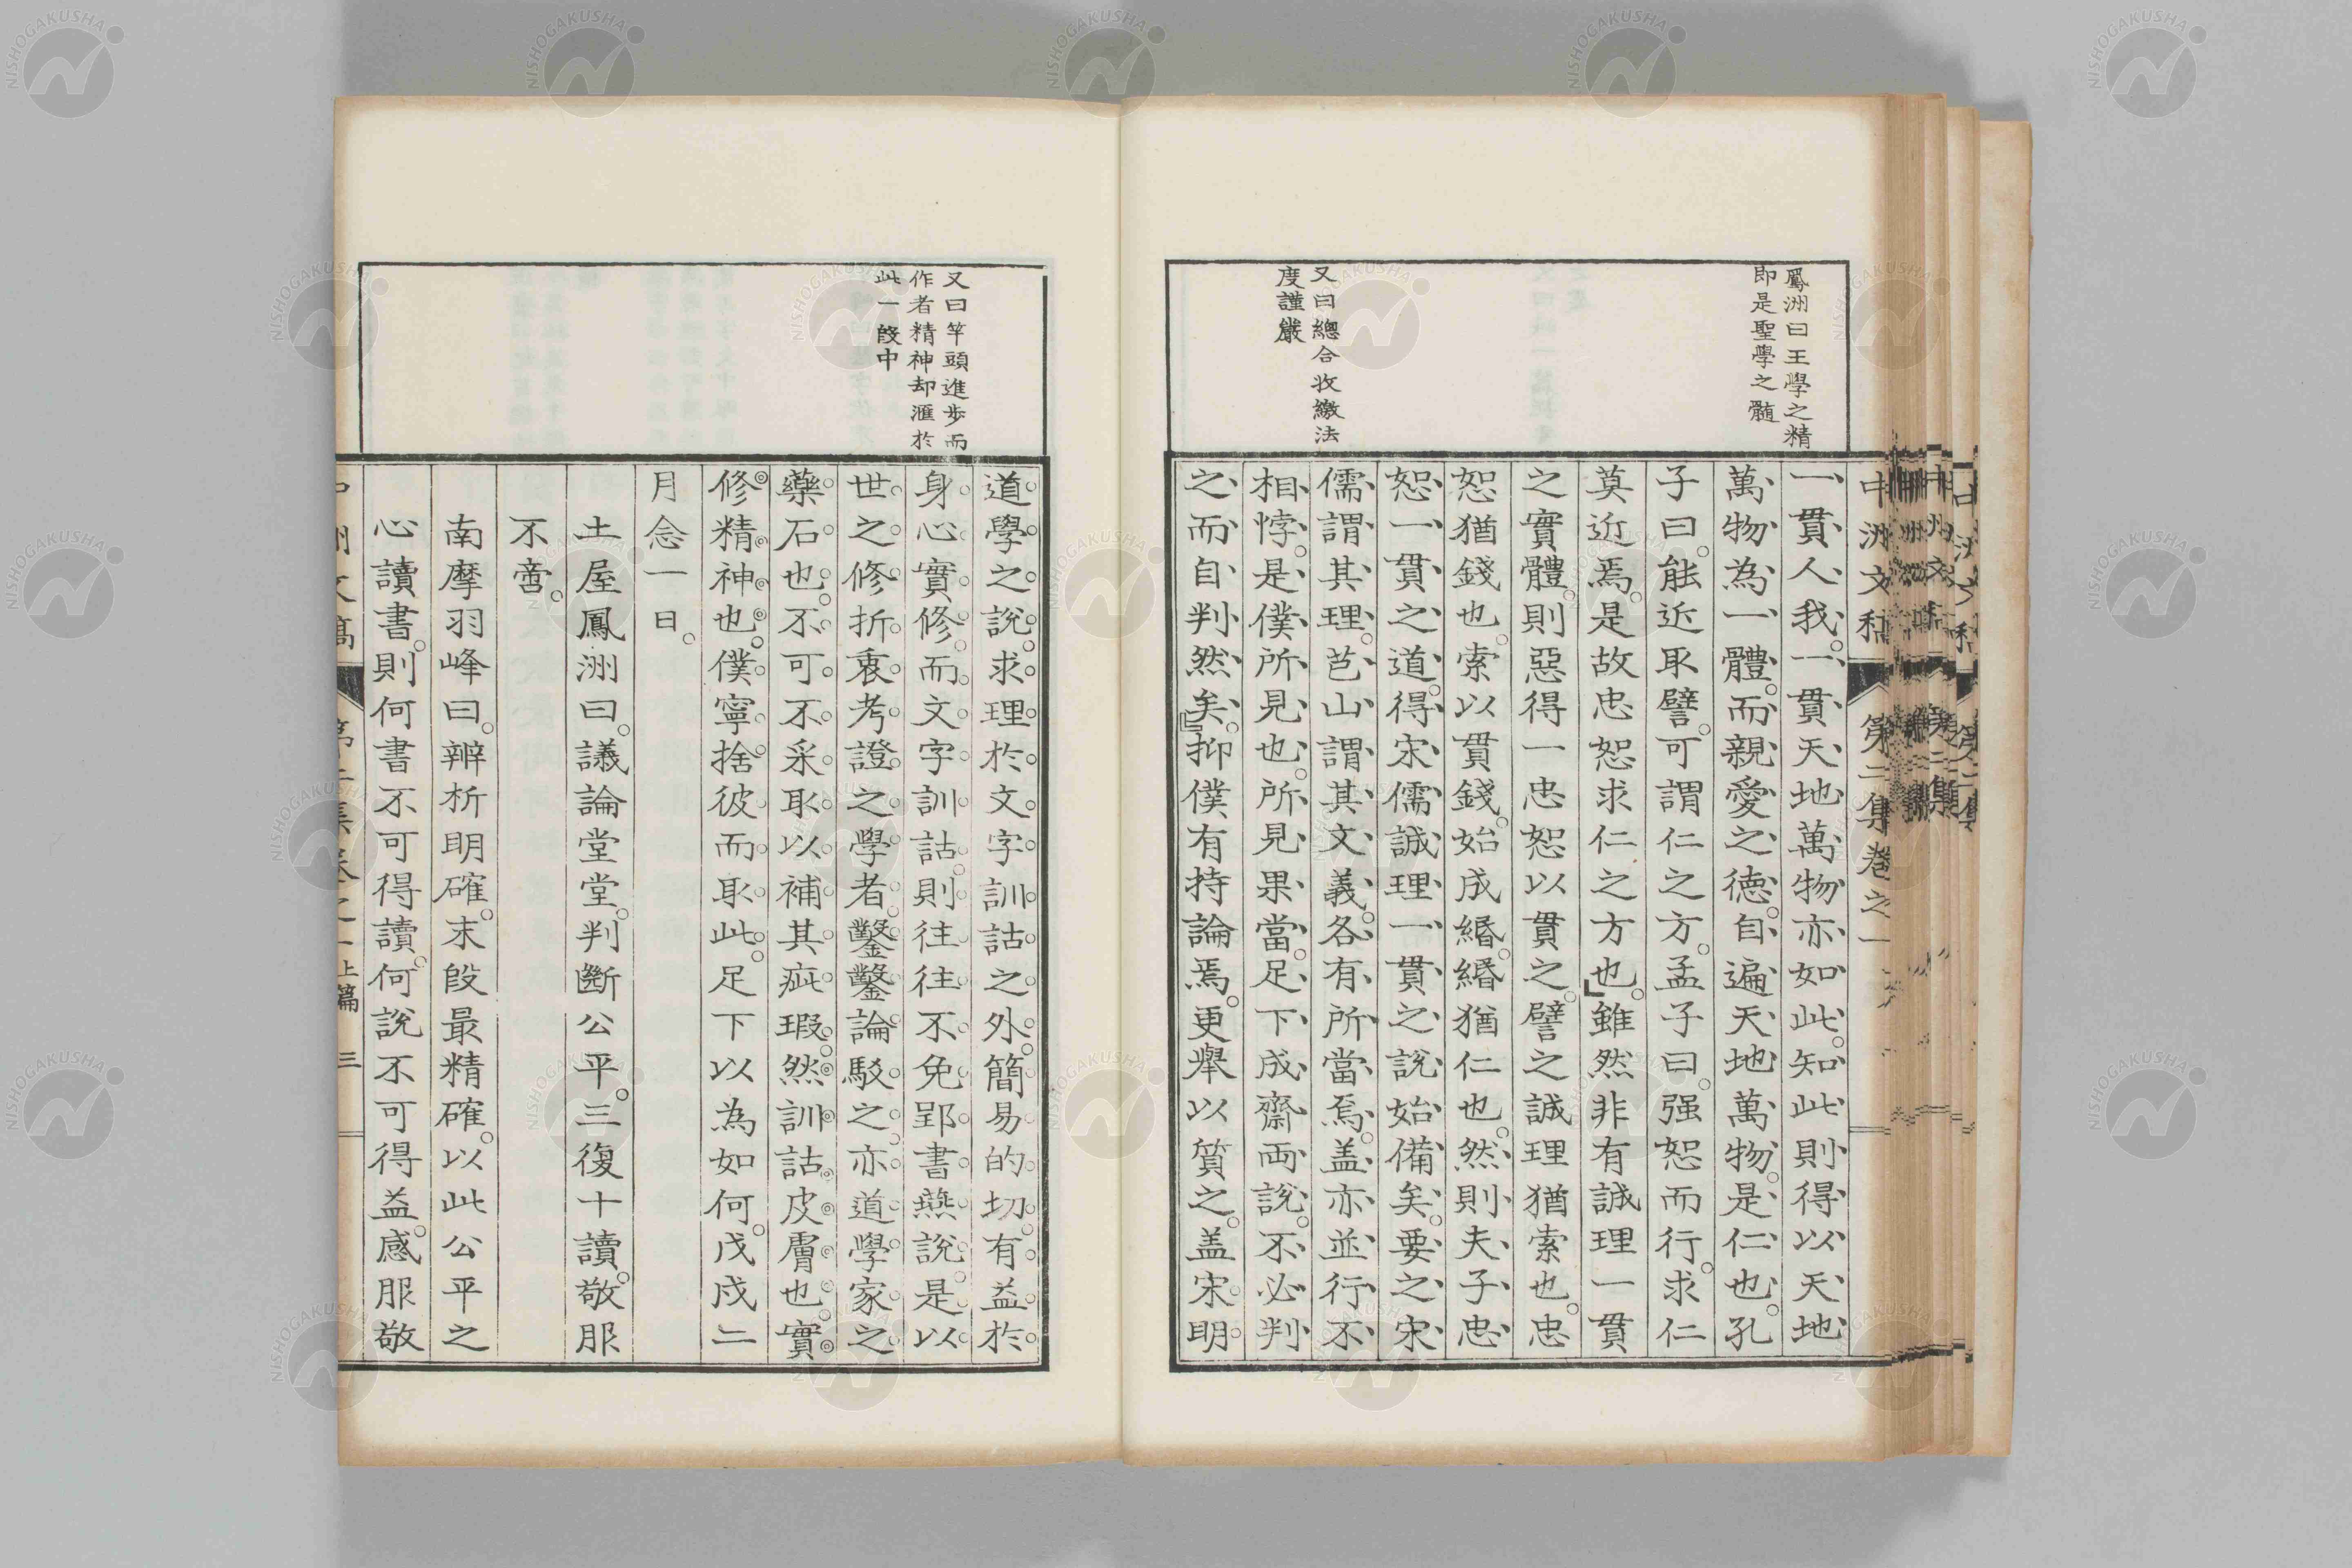 中洲文稿 第二集卷之一
鳳洲曰王學之精
即是聖學之髄
又曰總合收繳法
度謹嚴
一貫人我。一貫天地萬物亦如此。知此則得以天地
萬物為一體。而親愛之德。自遍天地萬物。是仁也。孔
子曰。能近取譬。可謂仁之方。孟子曰。强恕而行。求仁
莫近焉。是故忠恕求仁之方也。」雖然非有誠理一貫
之實體。則惡得一忠恕以貫之。譬之誠理猶索也。忠
恕猶錢也。索以貫錢。始成緡。緡猶仁也。然則夫子忠
恕一貫之道。得宋儒誠理一貫之說始備矣。要之宋
儒謂其理。芭山謂其文義。各有所當焉。盖亦並行不
相悖。是僕所見也。所見果當。足下成齋両說。不必判
之而自判然矣。」抑僕有持論焉。更擧以質之。盖宋明
又曰竿頭進步而
作者精神却滙於
此一段中
道學之說。求理於文字訓詁之外。簡易的切。有益於
身心實修。而文字訓詁。則往往不免郢書燕說。是以
世之修折衷考證之學者。鑿鑿論駁之。亦道學家之
藥石也。不可不采取以補其疵瑕。然訓詁皮膚也。實
修精神也。僕寧捨彼而取此。足下以為如何。戊戌二
月念一日。
土屋鳳洲曰。議論堂堂。判斷公平。三復十讀。敬服
不啻。
南摩羽峰曰。辨析明確。末段最精確。以此公平之
心讀書。則何書不可得讀。何說不可得益。感服敬
第二集卷之一上篇 三